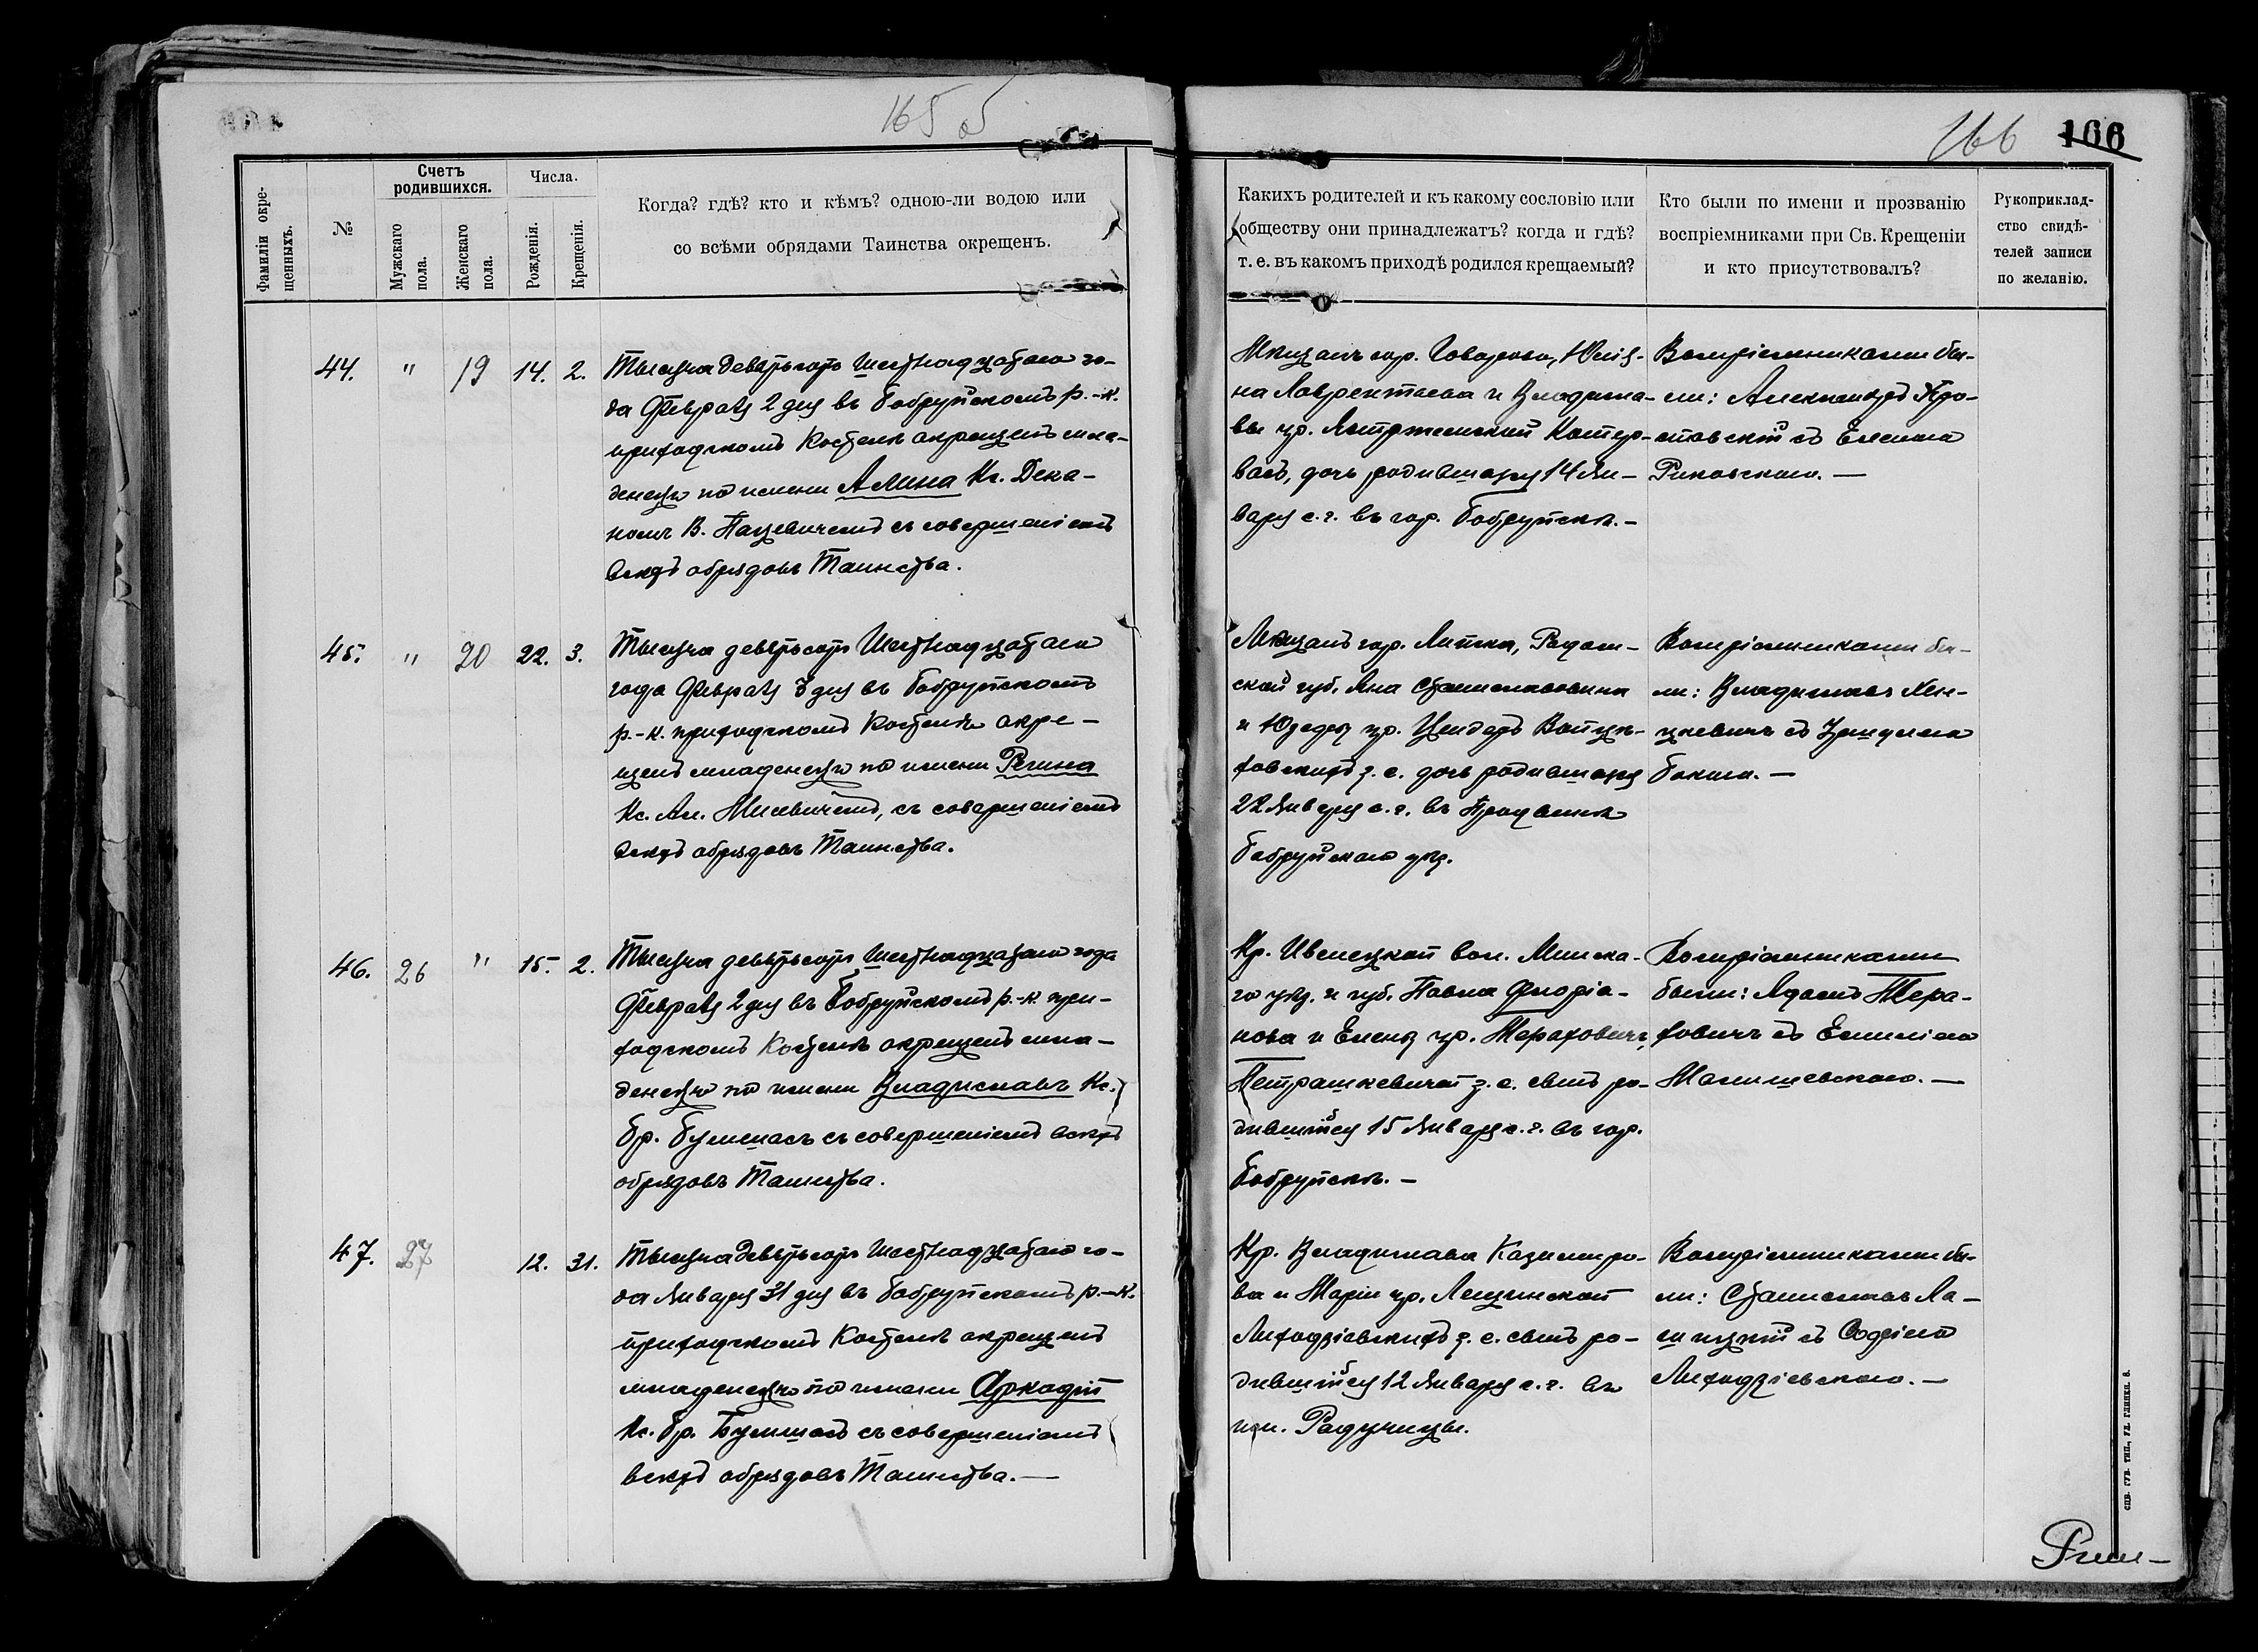 165 об
166 166
Фамиліи окре-
щенныхъ.
№
Счетъ
родившихся.
Мужскаго
пола.
Женскаго
пола.
Числа.
Рожденія.
Крещенія.
Когда? гдѣ? кто и кѣмъ? одною-ли водою или
со всѣми обрядами Таинства окрещенъ.
Какихъ родителей и къ какому сословію или
обществу они принадлежатъ? когда и гдѣ?
т. е. въ какомъ приходѣ родился крещаемый?
Кто были по имени и прозванію
воспріемниками при Св. Крещеніи
и кто присутствовалъ?
Рукоприклад-
ство свидѣ-
телей записи
по желанію.
44. " 19 14. 2.
Тысяча девятьсотъ Шестнадцатаго го-
да Февраля 2 дня въ Бобруйскомъ р.-к.
приходскомъ Костелѣ окрещенъ мла-
денецъ по имени Алина Кс. Дека-
номъ В. Пацевичемъ съ совершеніемъ
всѣхъ обрядовъ Таинства.
Мѣщанъ гор. Юлія-
на Лаврентьева и Владисла-
вы ур.
дочь родившаяся 14 Ян-
варя с. г. въ гор. Бобруйскѣ.-
Воспріемниками бы-
ли: Александръ
съ Еленою
45. " 20 22. 3.
Тысяча девятьсотъ Шестнадцатаго
года Февраля 3 дня въ Бобруйскомъ
р.-к. приходскомъ Костелѣ окре-
щенъ младенецъ по имени Регина
Кс. Ал. съ совершеніемъ
всѣхъ обрядовъ Таинства.
Мѣщанъ гор. Липска,
губ. Яна Станиславовича
и ур.
з. с. дочь родившаяся
22 Января с. г. въ
Бобруйскаго уѣз.
Воспріемниками бы-
ли: Владиславъ
съ
46. 26 " 15. 2.
Тысяча девятьсотъ Шестнадцатаго года
Февраля 2 дня въ Бобруйскомъ р.-к при-
ходскомъ Костелѣ окрещенъ мла-
денецъ по имени Владиславъ Кс.
Бр. съ совершеніемъ всѣхъ
обрядовъ Таинства.
Кр. Ивенецкой вол. Минска-
го уѣз. и губ. Павла Флоріа-
нова и Елены ур. Терахович,
Петрашкевичей з. с. сынъ ро-
дившійся 15 Января с. г. въ гор.
Бобруйскѣ. -
Воспріемниками
были: Адамъ Тера-
ховичъ съ Емиліею
Малишевскою. -
47. 27 12. 31.
Тысяча девятьсотъ Шестнадцатаго го-
да Января 31 дня въ Бобруйскомъ р.-к.
приходскомъ Костелѣ окрещенъ
младенецъ по имени Аркадій
Кс. Бр. съ совершеніемъ
всѣхъ обрядовъ Таинства.-
Кр. Владислава Казимиро-
ва и Маріи ур. Лещинской
Лиходзіевскихъ з. с. сынъ ро-
дившійся 12 Января с. г. въ
им. Радуницы.
Воспріемниками бы-
ли: Станиславъ
съ Софіею
Лиходзіевскою.-
СПБ. ГУБ. ТИП., УЛ. ГЛИНКИ. 8.